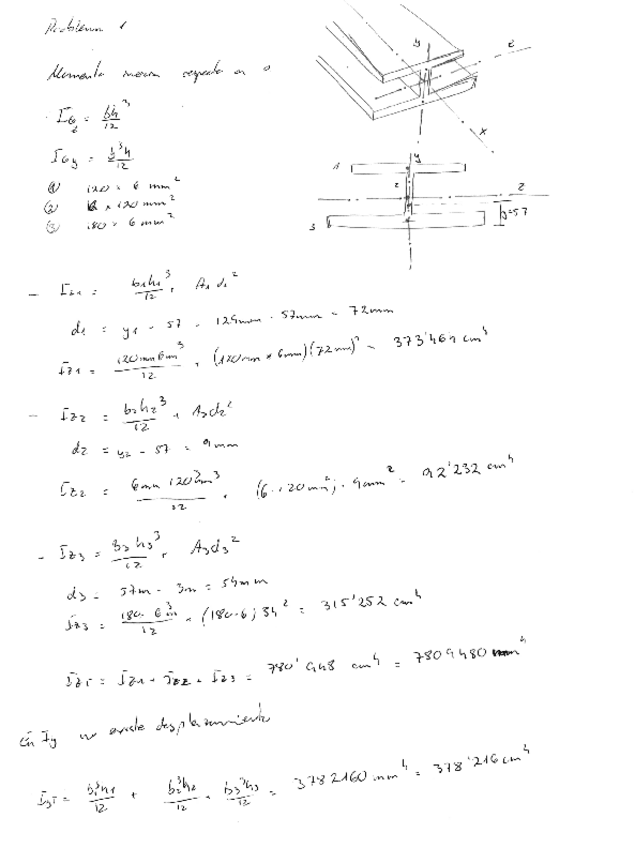 Problema 1
Momento inercia respecto a G
I_Gz = bh³/12
I_Gy = b³h/12
① 120 × 6 mm²
② 6 × 120 mm²
③ 180 × 6 mm²
y
z
x
y
1
2
z
3
y=57
- I_z1 = b₁h₁³/12 + A₁d₁²
d₁ = y₁ - 57 = 129mm - 57mm = 72mm
I_z1 = 120mm 6mm³/12 + (120mm × 6mm)(72mm)² = 373'464 cm⁴
- I_z2 = b₂h₂³/12 + A₂d₂²
d₂ = y₂ - 57 = 9mm
I_z2 = 6mm 120³mm³/12 + (6·120mm²)·9mm² = 92'232 cm⁴
- I_z3 = b₃h₃³/12 + A₃d₃²
d₃ = 57m - 3m = 54mm
I_z3 = 180·6³/12 + (180·6)54² = 315'252 cm⁴
I_zT = I_z1 + I_z2 + I_z3 = 780'948 cm⁴ = 7809480 mm⁴
En Iy no existe desplazamiento
I_yT = b₁³h₁/12 + b₂³h₂/12 + b₃³h₃/12 = 3782160 mm⁴ = 378'216 cm⁴